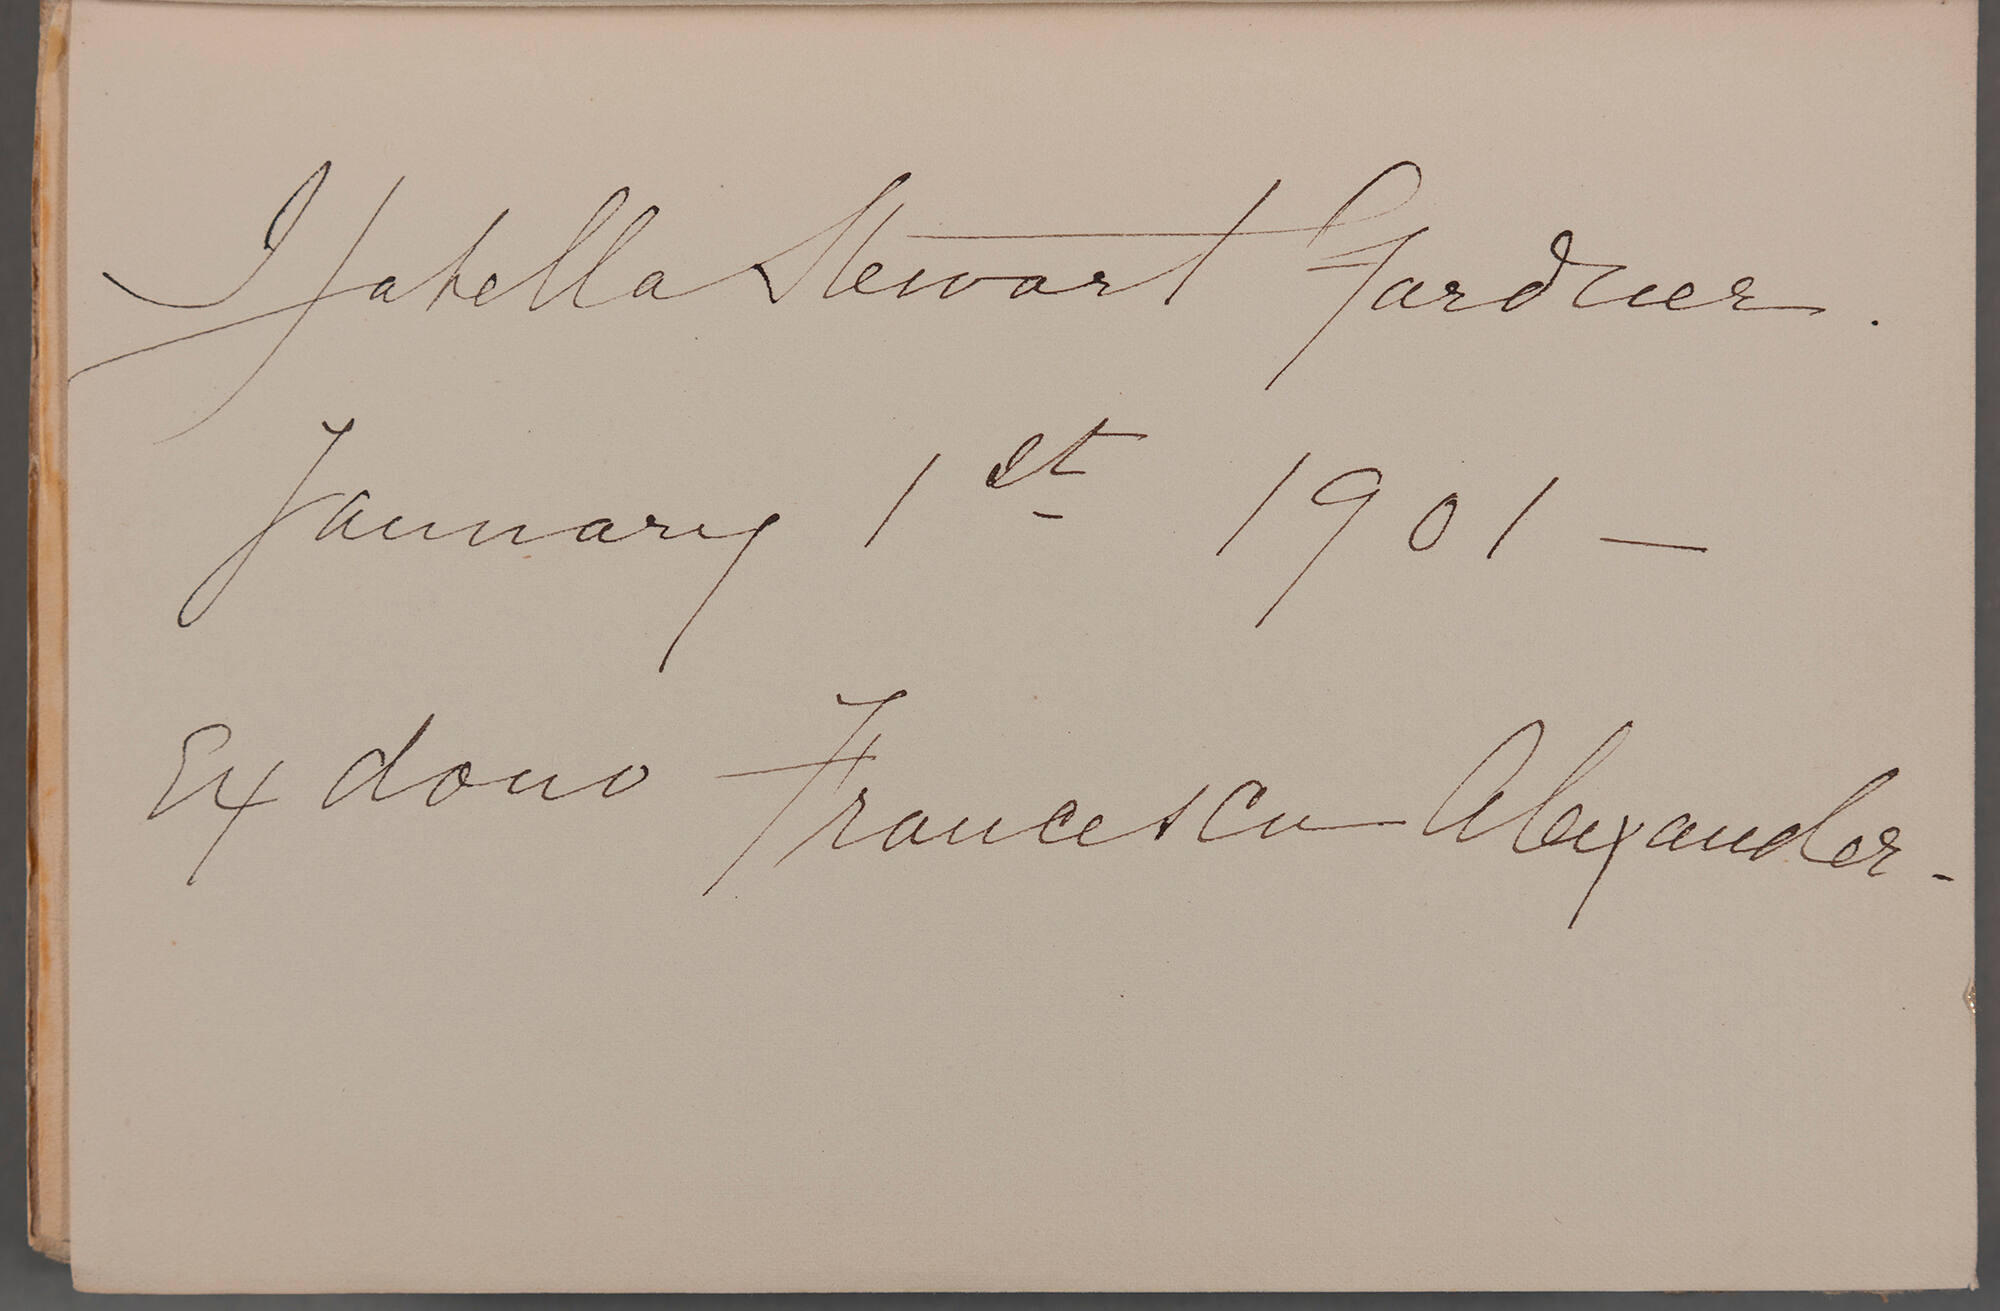 Isabella Stewart Gardner.
January 1st 1901 —
Ex dono Francesca Alexander -